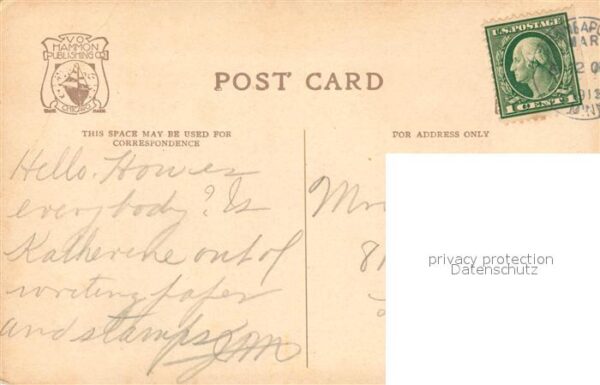 V.O. HAMMON
PUBLISHING CO.
CHICAGO
TRADE MARK
POST CARD
U.S. POSTAGE
1 CENT 1
MAR
THIS SPACE MAY BE USED FOR
CORRESPONDENCE
FOR ADDRESS ONLY
Hello. How es
everybody? Is
Katherine out of
writing paper
and stamps
Mr
81
privacy protection
Datenschutz